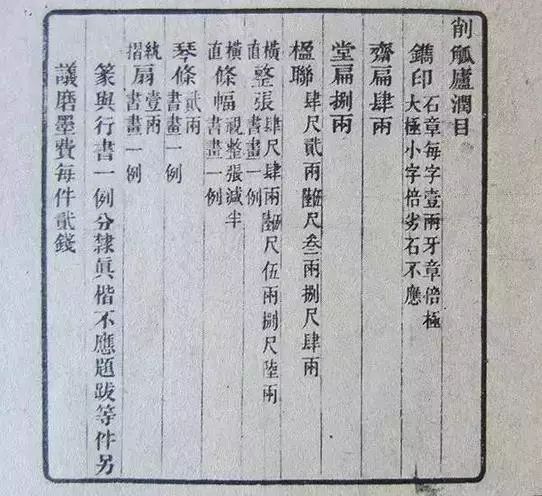 削觚廬潤目
鐫印 石章每字壹兩牙章倍極
大極小字倍劣石不應
齋扁肆兩
堂扁捌兩
楹聯 肆尺貳兩陸尺叁兩捌尺肆兩
橫直整張 肆尺肆兩陸尺伍兩捌尺陸兩
書畫一例
橫直條幅 視整張減半
書畫一例
琴條 貳兩
書畫一例
紈摺扇 壹兩
書畫一例
篆與行書一例分隸眞楷不應題跋等件另
議磨墨費每件貳錢